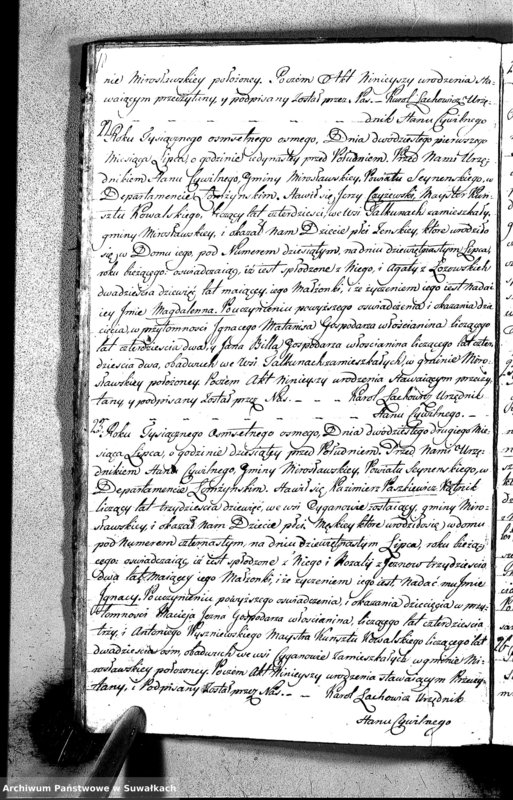 nie Mirosławskiey położoney. Poczem Akt Ninieyszy urodzenia Sta-
waiącym przeczytany, y podpisany został przez Nas. — Karol Lachowicz Urzę-
dnik Stanu Cywilnego
22. Roku Tysiącznego osmsetnego osmego, Dnia dwudziestego pierwszego
Miesiąca Lipca, o godzinie iedynastey przed Południem. Przed Nami Urzę-
dnikiem Stanu Cywilnego, Gminy Mirosławskiey, Powiatu Seynenskiego, w
Departamencie Łomżynskim. Stawił się Jerzy Czyżewski, Mayster Kun-
sztu Kowalskiego, liczący lat czterdzieści, we Wsi Talkunach zamieszkały,
gminy Mirosławskiey, i okazał nam Dziecie płci Żenskiey, które urodziło
się, w Domu iego, pod Numerem dziesiątym, na dniu dziewiętnastym Lipca,
roku bieżącego: oswiadczaiąc, iż iest spłodzone z Niego, i Agaty z Łozowskich
dwadzieścia dziewięć lat maiącey, iego Małżonki, i że życzeniem iego iest Nadać
iey Jmie Magdalenna. Po uczynieniu powyższego oswiadczenia i okazania dzie-
cięcia, w przytomności Jgnacego Matanisa Gospodarza włościanina liczącego
lat czterdzieścia dwa, y Jana Billa Gospodarza włościanina liczącego lat czter-
dzieścia dwa, obudwuch we Wsi Talkunach zamieszkałych, w gminie Miro-
sławskiey położoney. Poczem Akt Ninieyszy urodzenia Stawaiącym przeczy-
tany y podpisany został przez Nas. — — Karol Lachowicz Urzędnik
Stanu Cywilnego. —
23. Roku Tysiącznego Osmsetnego osmego, Dnia dwudziestego drugiego Mie-
siąca Lipca, o godzinie dziesiątey przed Południem. Przed Nami Urzę-
dnikiem Stanu Cywilnego, Gminy Mirosławskiey, Powiatu Seynenskiego, w
Departamencie Łomżynskim. Stawił się Kazimierz Paszkiewicz
liczący lat trzydzieścia dziewięć, we wsi Cyganowie zostaiący, gminy Miro-
sławskiey, i okazał nam Dziecie płci Męskiey które urodziło się w domu
pod Numerem czternastym, na dniu dziewiętnastym Lipca, roku bieżą-
cego: oswiadczaiąc iż iest spłodzone z Niego i Rozalij z Jeznow trzydzieścia
dwa lat Maiącey iego Małżonki, i że życzeniem iego iest Nadać mu Jmie
Jgnacy. Po uczynieniu powyższego oswiadczenia, i okazania dziecięcia w przy-
tomności Macieja Jezna Gospodarza włościanina, liczącego lat czterdzieścia
trzy, i Antoniego Wyszniewskiego Maystra Kunsztu Kowalskiego liczącego lat
dwadzieścia osm, obudwuch we wsi Cyganowie zamieszkałych w gminie Mi-
rosławskiey położoney. Poczem Akt Ninieyszy urodzenia stawaiącym Przeczy-
tany, i Podpisany został przez Nas. — — Karol Lachowicz Urzędnik
Stanu Cywilnego
Archiwum Państwowe w Suwałkach